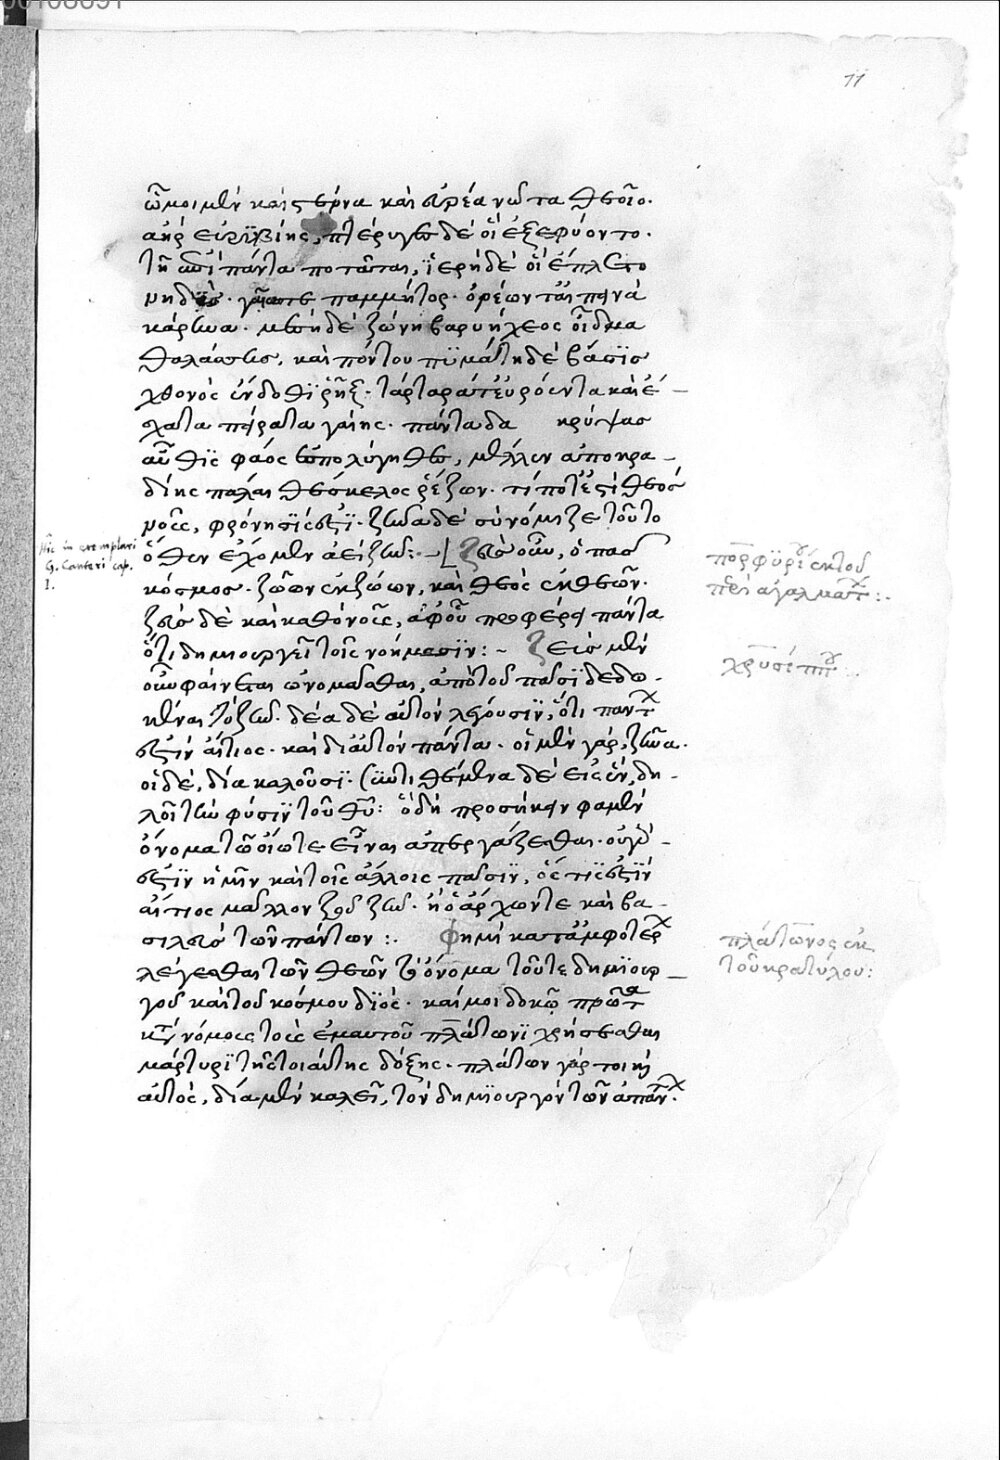 11
ὦμοι μὲν καὶ στέρνα καὶ εὐρέα νῶτα θεοῖο.
ἀὴρ εὐρυβίης, πτέρυγες δέ οἱ ἐξεφύοντο.
τῇ ἐπὶ πάντα ποτᾶται, ἱερὴ δέ οἱ ἔπλετο
νηδὺς. γαῖά τε παμμήτορ. ὀρέων τ' αἰπεινὰ
κάρηνα. μέση δὲ ζώνη βαρυήχεος οἶδμα
θαλάσσης, καὶ πόντου πυμάτη δὲ βάσις
χθονὸς ἔνδοθι ῥίζαι. τάρταρά τ' εὐρόεντα καὶ ἔ-
σχατα πέρατα γαίης. πάντα δα κρύψας
αὖθις φάος ἐς πολυγηθές, μέλλεν ἀπὸ κρα-
δίης πάλαι θέσκελος ῥέζων. τί ποτ' ἐστὶ θεός
μοις, φρόνησίς ἐστι. ζῶα δὲ συνόμιζε τοῦτο
ὅθεν ἔχομεν ἀεὶ ζῶ:- [Ζεὺς οὖν, ὁ πᾶς
κόσμος. ζῶον ἐκ ζώων, καὶ θεὸς ἐκ θεῶν.
ζεὺς δὲ καὶ καθὸ νοῦς, ἀφ' οὗ προφέρει πάντα
ὅτι δημιουργεῖ τοῖς νοήμασιν:- Ζεὺς μὲν
οὖν φαίνεται ὠνομάσθαι, ἀπὸ τοῦ πᾶσι δεδω-
κέναι τὸ ζῆν. δία δὲ αὐτὸν λέγουσιν, ὅτι πάντων
ἐστὶν αἴτιος. καὶ δι' αὐτὸν πάντα. οἱ μὲν γὰρ, ζῆνα.
οἱ δὲ, δία καλοῦσι. συντιθέμενα δὲ εἰς ἓν, δη-
λοῖ τὴν φύσιν τοῦ θεοῦ: ὃ δὴ προσήκειν φαμὲν
ὀνόματι οἵῳ τε εἶναι ἀπεργάζεσθαι. οὐ γάρ
ἐστιν ἡμῖν καὶ τοῖς ἄλλοις πᾶσιν, ὅστις ἐστὶν
αἴτιος μᾶλλον τοῦ ζῆν. ἢ ὁ ἄρχων τε καὶ βα-
σιλεὺς τῶν πάντων:. φημὶ κατ' ἀμφοτέρων
λέγεσθαι τῶν θεῶν τὸ ὄνομα τοῦ τε δημιουρ-
γοῦ καὶ τοῦ κόσμου διὸς. καί μοι δοκῶ πρῶτον
κατὰ νόμους τοὺς ἐμαυτοῦ πλάτωνι χρήσεσθαι
μάρτυρι τῆς τοιαύτης δόξης. πλάτων γάρ που
αὐτὸς, δία μὲν καλεῖ, τὸν δημιουργὸν τῶν ἁπάντων.
Hic in exemplari
G. Canteri cap.
1.
πορφυρίου ἐκ τοῦ
περὶ ἀγαλμάτων:.
χρυσίππου:.
πλάτωνος ἐκ
τοῦ κρατύλου: